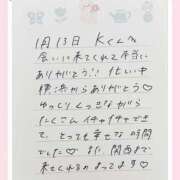 1月13日 Kくん
会いに来てくれて本当に
ありがとう!忙しい中
横浜からありがとう♡
ゆっくりくっつきながら
たくさんイチャイチャできて
とっても幸せな時間
でした♡ また、関西まで
来てくれるのまってます♡